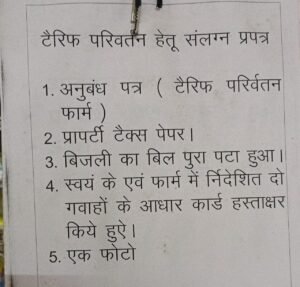 टैरिफ परिवर्तन हेतू संलग्न प्रपत्र
1. अनुबंध पत्र ( टैरिफ परिर्वतन
फार्म )
2. प्रापर्टी टैक्स पेपर।
3. बिजली का बिल पुरा पटा हुआ।
4. स्वयं के एवं फार्म में र्निदेशित दो
गवाहों के आधार कार्ड हस्ताक्षर
किये हुऐ।
5. एक फोटो